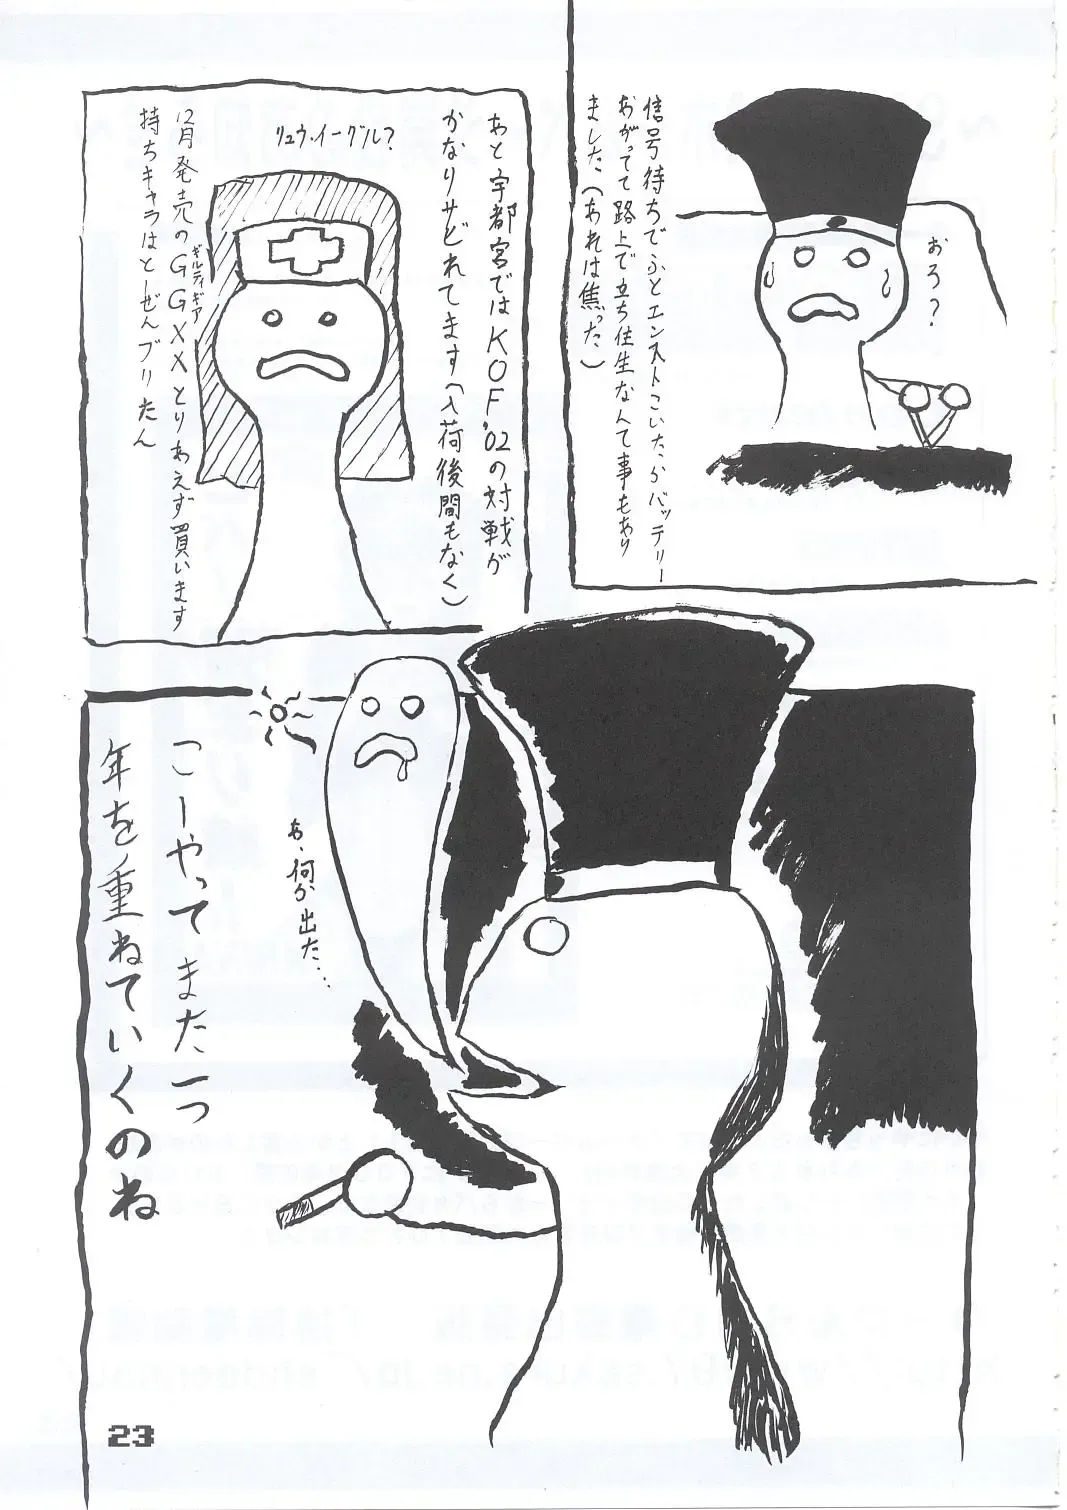 信号待ちでふとエンストこいたがバッテリー
おがってて路上で立ち往生なんて事もあり
ました、(あれは焦った)
おろ?
あと宇都宮ではKOF'02の対戦が
かなりサどれてます(入荷後間もなく)
リュウ・イーグル?
12月発売のGGXXとりあえず買います
ギルティギア
持ちキャラはとーぜんブリたん
あ、何か出た…
こーやってまた一つ
年を重ねていくのね
23